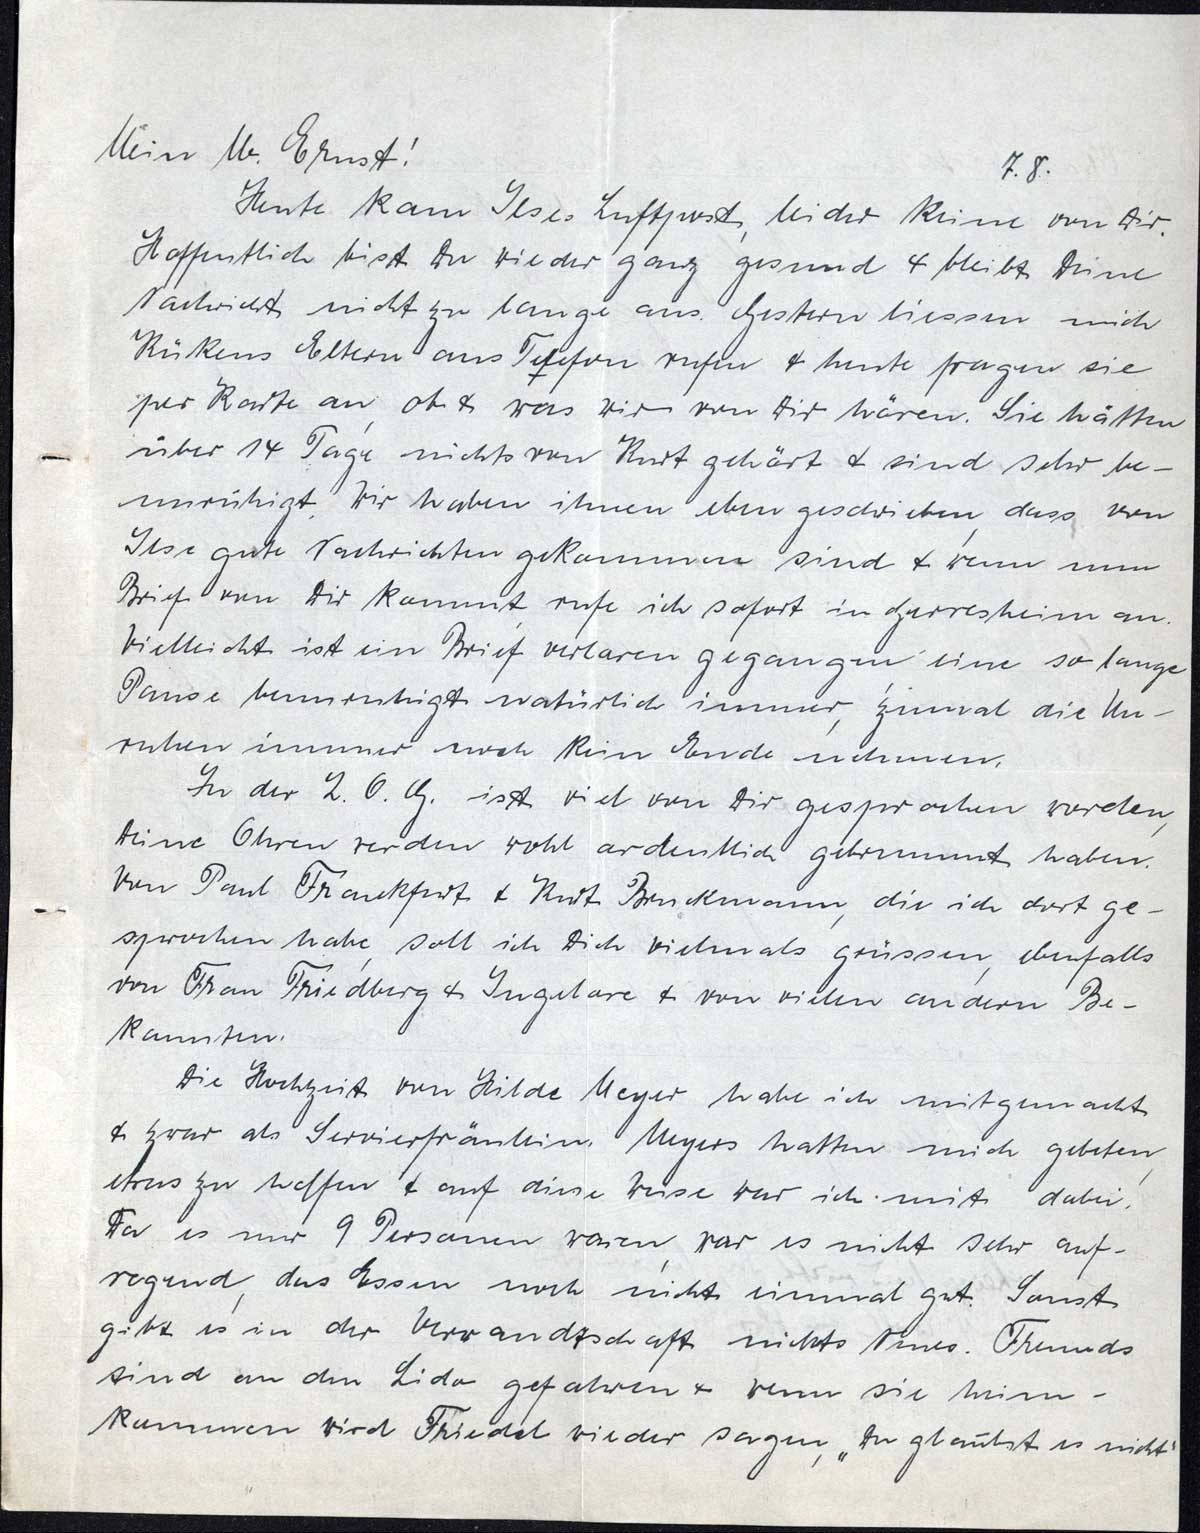 Mein l. Ernst!
7. 8.
Heute kam Ilses Luftpost, leider keine von Dir.
Hoffentlich bist Du wieder ganz gesund & bleibt Deine
Nachricht nicht zu lange aus. Gestern liessen mich
Rükens Eltern ans Telefon rufen & heute fragen sie
per Karte an, ob & was wir von Dir hören. Sie hätten
über 14 Tage nichts von Kurt gehört & sind sehr be-
unruhigt. Wir haben ihnen eben geschrieben, dass von
Ilse gute Nachrichten gekommen sind & wenn nun
Brief von Dir kommt, rufe ich sofort in Gerresheim an.
Vielleicht ist ein Brief verloren gegangen, eine so lange
Pause beunruhigt natürlich immer, zumal die Un-
ruhen immer noch kein Ende nehmen.
In der Z. O. G. ist viel von Dir gesprochen worden,
Deine Ohren werden wohl ordentlich gebrummt haben.
Von Paul Frankfurt & Kurt Bruckmann, die ich dort ge-
sprochen habe, soll ich Dich vielmals grüssen, ebenfalls
von Frau Friedberg & Ingelore & von vielen andern Be-
kannten.
Die Hochzeit von Hilde Meyer habe ich mitgemacht
& zwar als Servierfräulein. Meyers hatten mich gebeten,
etwas zu helfen & auf diese Weise war ich mit dabei.
Da es nur 9 Personen waren, war es nicht sehr auf-
regend, das Essen noch nicht einmal gut. Sonst
gibt es in der Verwandtschaft nichts Neues. Freunds
sind an den Lido gefahren & wenn sie heim-
kommen wird Friedel wieder sagen, „Du glaubst es nicht"